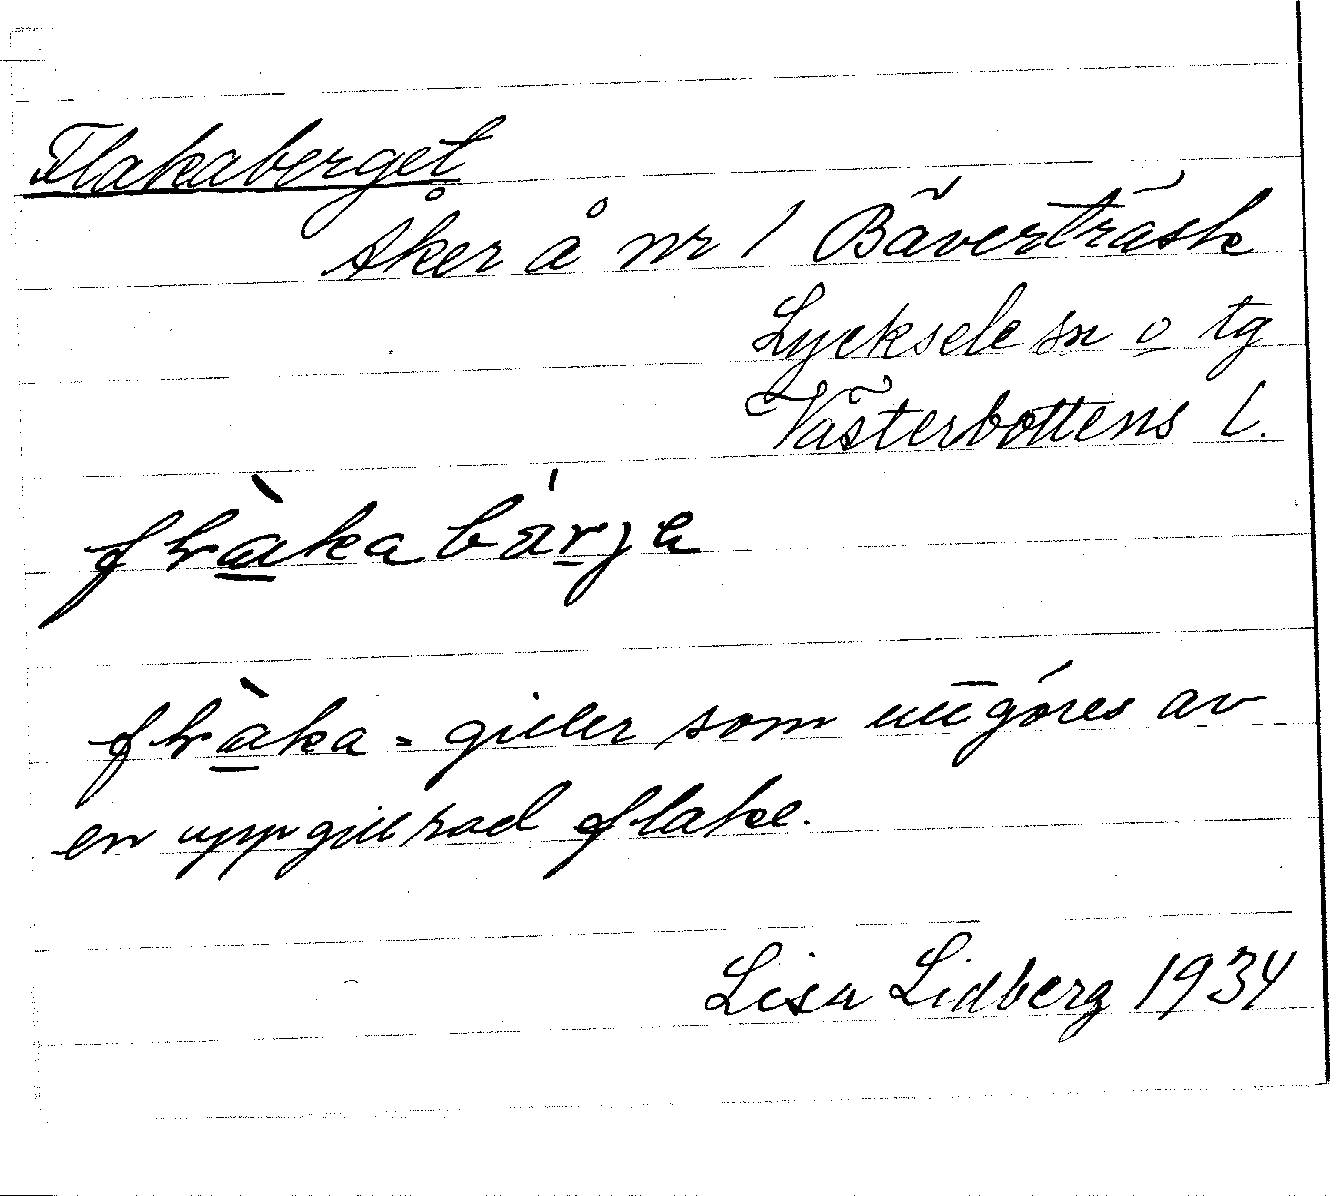 Flakaberget
Åker å nr 1 Bäverträsk
Lycksele sn o tg
Västerbottens l.
flàkabä́rjа
flàka = giller som utgöres av
en uppgillrad flake.
Lisa Lidberg 1934